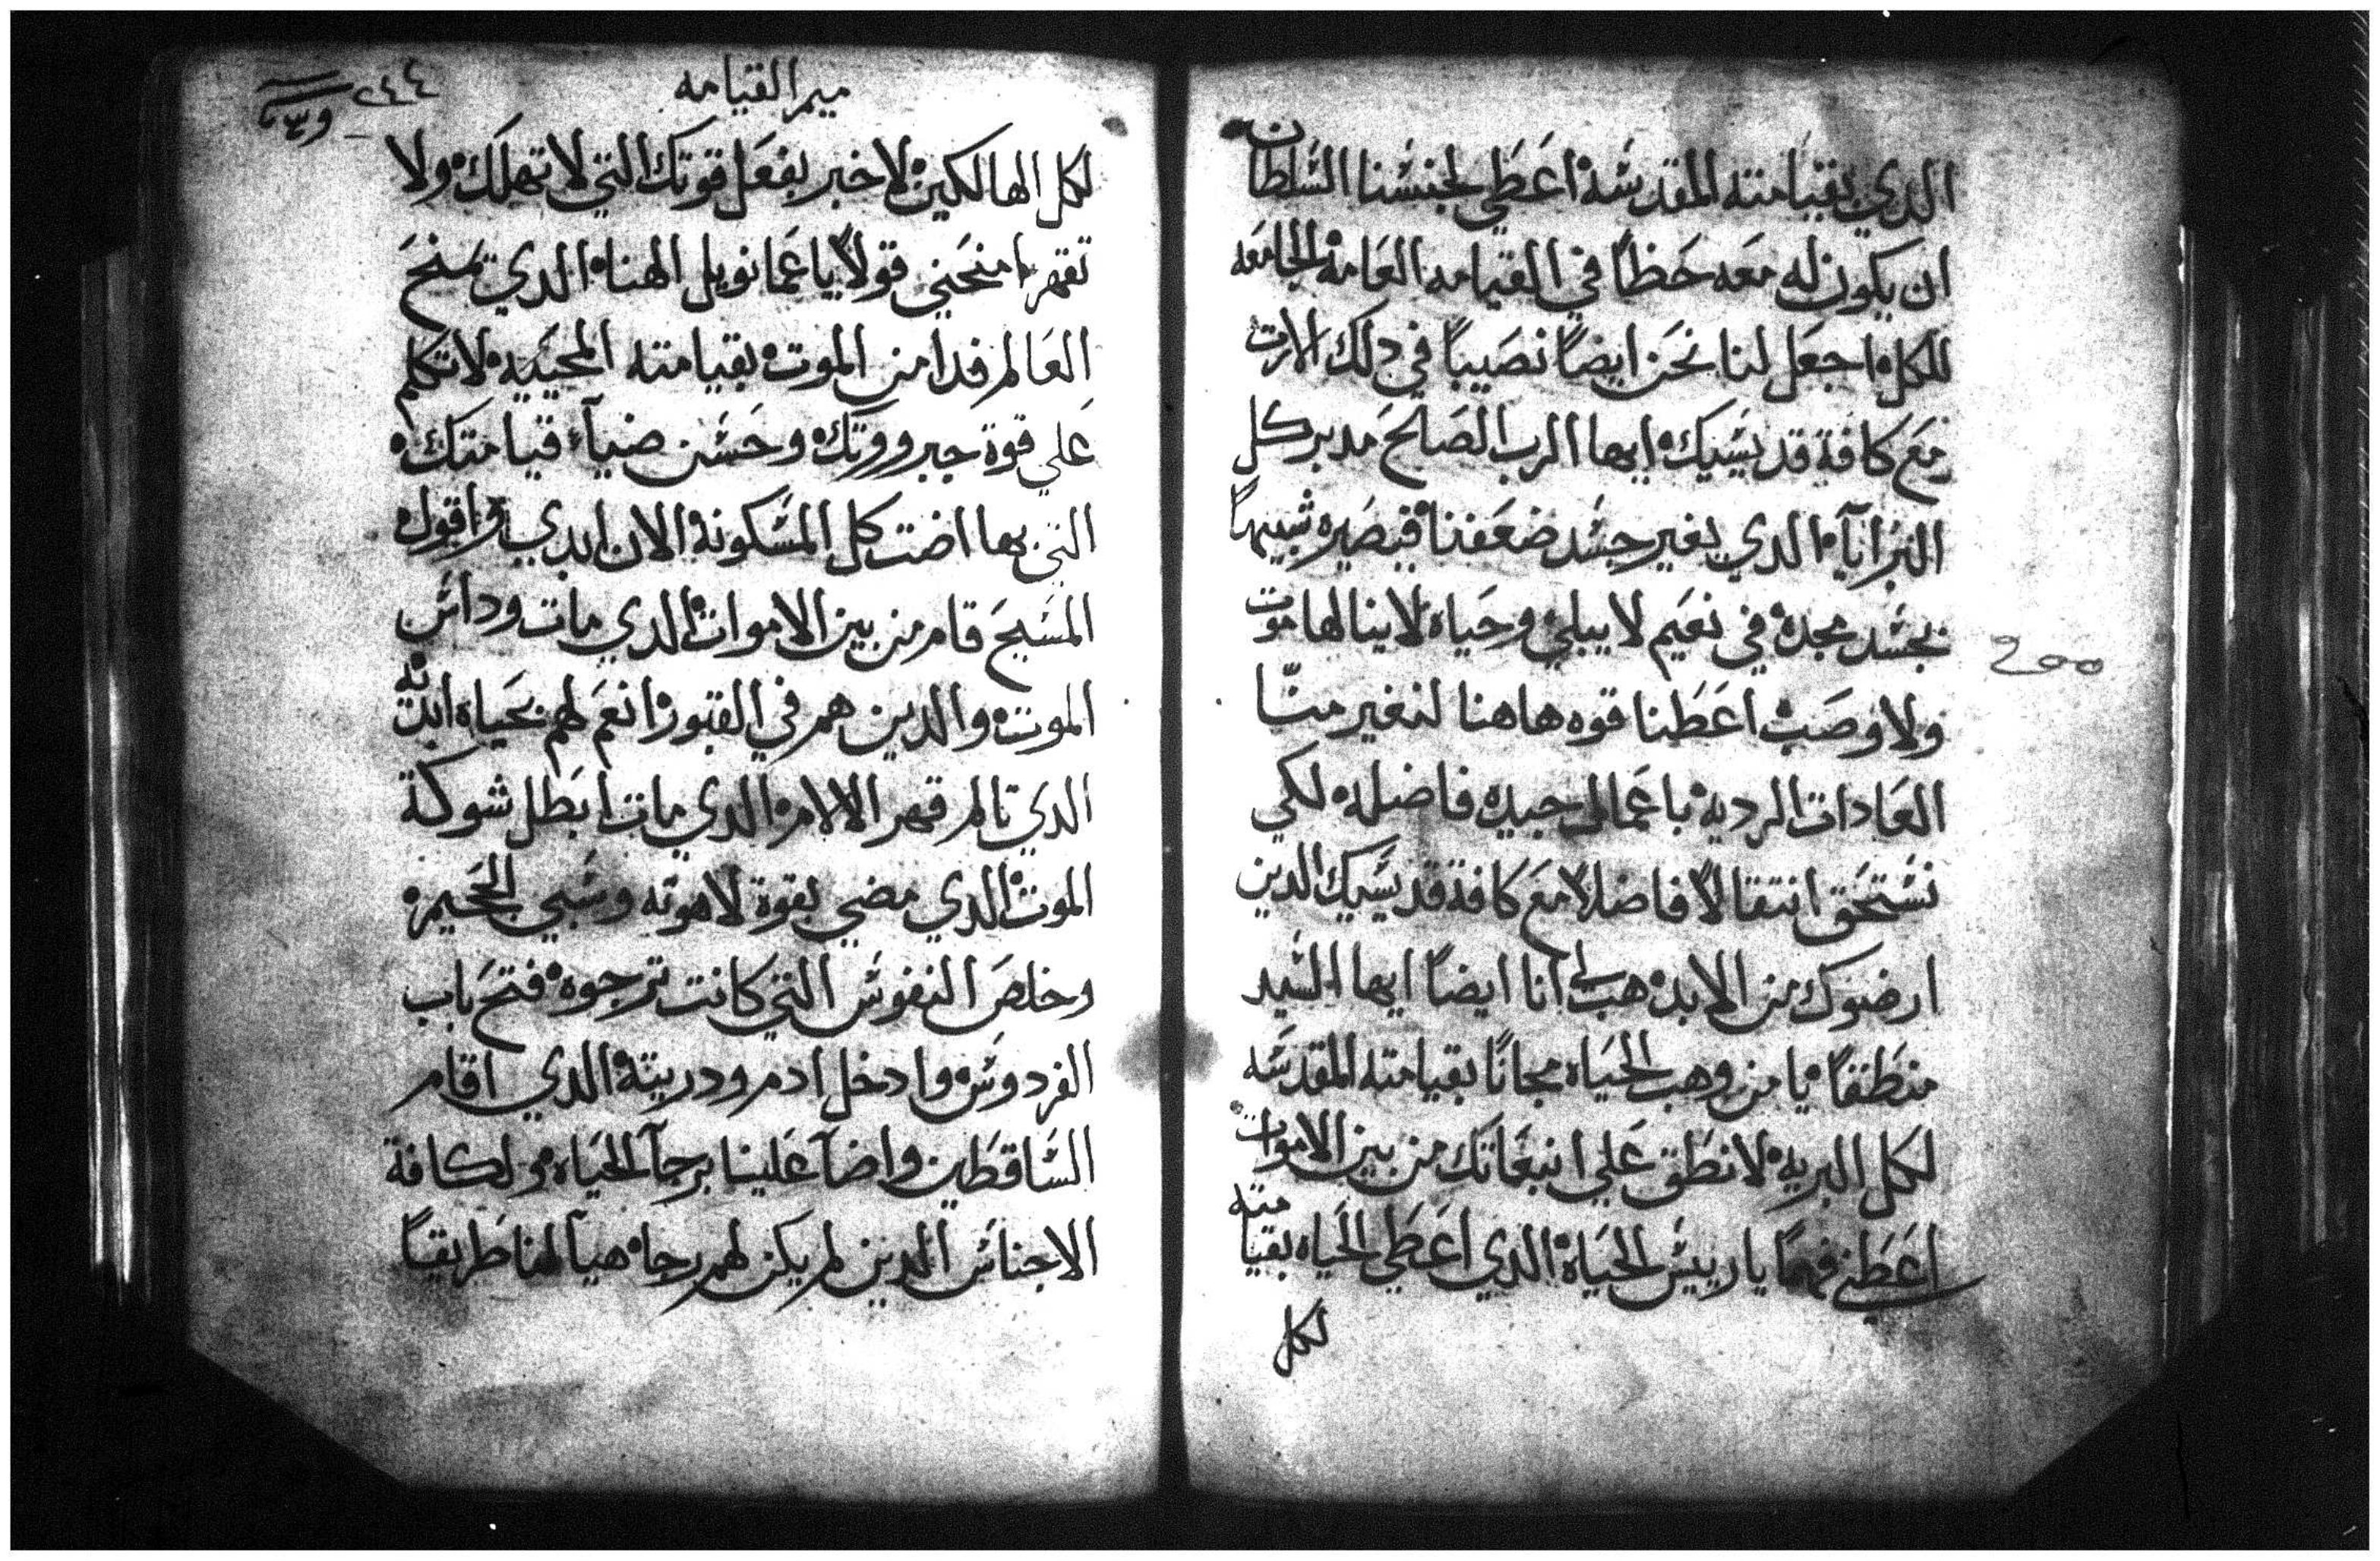 الدي بقيامته المقدسه اعطي لجنسنا السلطان
ان يكون له معه حظاً في القيامه العامه الجامعه
للكل اجعل لنا نحن ايضاً نصيباً في دلك الارت
مع كافة قديسيك ايها الرب الصالح مدبر كل
البرايآ الدي يغير جسد ضعفنا فيصيره شبيهاً
بجسد مجده في نعيم لا يبلي وحياه لا ينالها موت
ولا وصب اعطنا قوه هاهنا لنغير منّا
العادات الرديه باعمال جيده فاضله لكي
نستحق انتقالاً فاضلاً مع كافة قديسيك الدين
ارضوك من الابد هب لي انا ايضاً ايها السيد
منطقاً يا من وهب الحياه مجاناً بقيامته المقدسه
لكل البريه لانطق علي انبعاتك من بين الاموات
اعطني فهماً يا رييس الحياه الدي اعطي الحياه بقيامته
لكل
ميمر القيامه
٢٤٤
لكل الهالكين لاخبر بفعل قوتك التي لا تهلك ولا
تقهر امنحني قولاً يا عمانويل الهنا الدي تمنح
العالم فدا من الموت بقيامته المحييه لاتكلم
علي قوة جبرووتك وحسن ضيآء قيامتك
التي بها اضت كل المسكونه الان ابدي واقول
المسيح قام من بين الاموات الدي مات وداس
الموت والدين هم في القبور انعم لهم بحياه ابديه
الدي تالم قهر الالام الدي مات ابطل شوكة
الموت الدي مضي بقوة لاهوته وسبي الجحيم
وخلص النفوس التي كانت ترجوه فتح باب
الفردوس وادخل ادم ودريته الدي اقام
الساقطين واضآ علينا برجآ الحياه ولكافة
الاجناس الدين لم يكن لهم رجا هيآ لهنا طريقاً